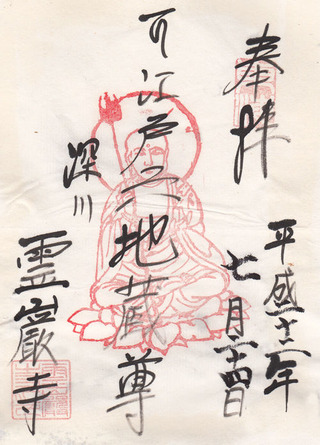 奉拝
平成十二年
七月二十四日
江戸六地蔵尊
深川
霊巌寺